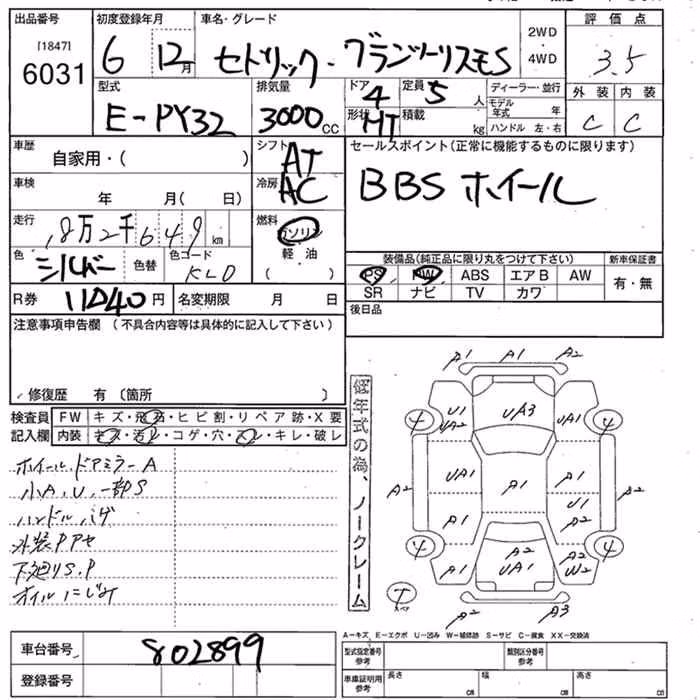 出品番号 初度登録年月 車名・グレード 2WD・4WD 評価点
[1847]
6031
6 12月 セドリック・グランツーリスモS 3.5
型式 排気量 ドア 定員 ディーラー・並行 外装 内装
E-PY32 3000cc 4 5人 モデル年式 年 C C
形状 HT 積載 kg ハンドル 左・右
車歴 自家用・( ) シフト AT セールスポイント(正常に機能するものに限ります)
車検 年 月( 日) 冷房 AC BBSホイール
走行 8万2千649km 燃料 ガソリン 軽油 ( )
色 シルバー 色替 色コード KL0 装備品(純正品に限り丸をつけて下さい) 新車保証書
PS PW ABS エアB AW 有・無
SR ナビ TV カワ
R券 11040円 名変期限 月 日 後日品
注意事項申告欄 (不具合内容等は具体的に記入して下さい)
修復歴 有 (箇所 )
検査員記入欄 FW キズ・飛石・ヒビ割・リペア跡・X要
内装 キズ・汚レ・コゲ・穴・スレ・キレ・破レ
ホイール、ドアミラーA
小A、U、一部S
ハンドルハゲ
外装PPヤセ
下廻りS.P
オイルにじみ
低年式の為、ノークレーム
A1 A1 A2
4 U1 UA2 UA3 UA1 4
A2 UA1 A1 A1 A2
A1 U1 A2
4 A1 A2 UA1 A2 W2 4
T スペア
A2 A3
A-キズ E-エクボ U-凹み W-補修跡 S-サビ C-腐食 XX-交換済
車台番号 802899 型式指定番号 参考 類別区分番号 参考
登録番号 車庫証明用 参考 長さ cm 幅 cm 高さ cm